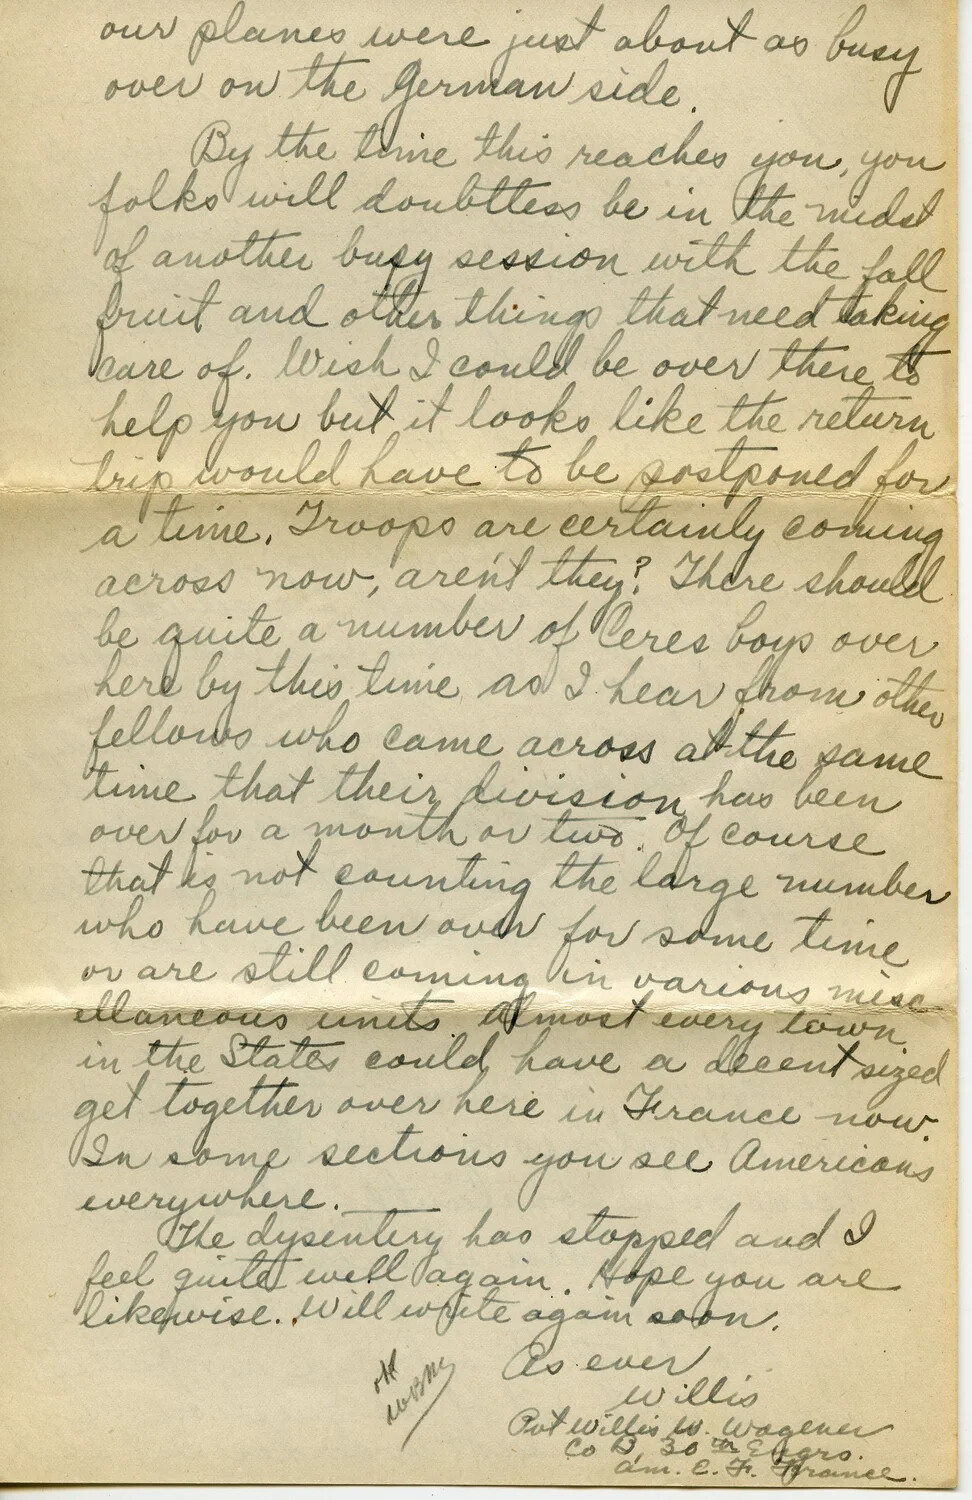 our planes were just about as busy
over on the German side.
By the time this reaches you, you
folks will doubtless be in the midst
of another busy session with the fall
fruit and other things that need taking
care of. Wish I could be over there to
help you but it looks like the return
trip would have to be postponed for
a time. Troops are certainly coming
across now, aren't they? There should
be quite a number of Ceres boys over
here by this time as I hear from other
fellows who came across at the same
time that their division has been
over for a month or two. Of course
that is not counting the large number
who have been over for some time
or are still coming in various misc
ellaneous units. Almost every town
in the States could have a decent sized
get together over here in France now.
In some sections you see Americans
everywhere.
The dysentery has stopped and I
feel quite well again. Hope you are
likewise. Will write again soon.
As ever
Willis
Pvt Willis W. Wagener
Co D, 30th Engrs.
Am. E. F. France.